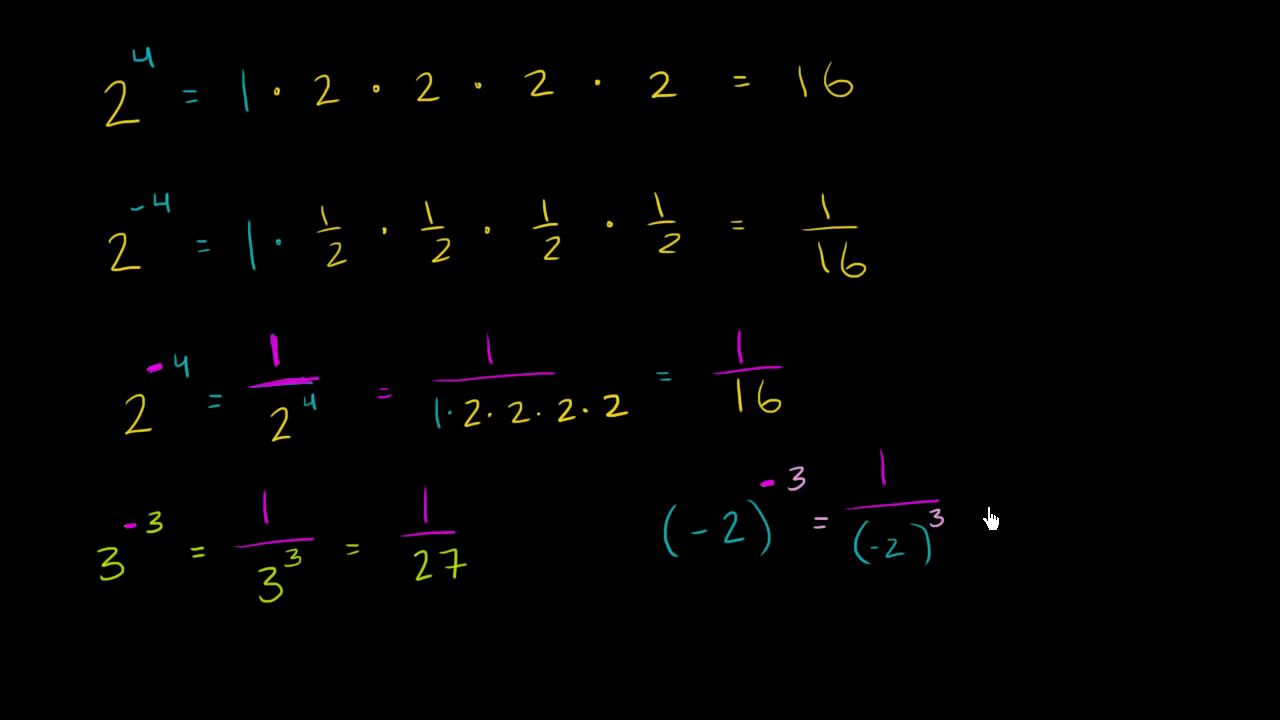 2^4 = 1 · 2 · 2 · 2 · 2 = 16
2^-4 = 1 · 1/2 · 1/2 · 1/2 · 1/2 = 1/16
2^-4 = 1/2^4 = 1/(1·2·2·2·2) = 1/16
3^-3 = 1/3^3 = 1/27
(-2)^-3 = 1/(-2)^3